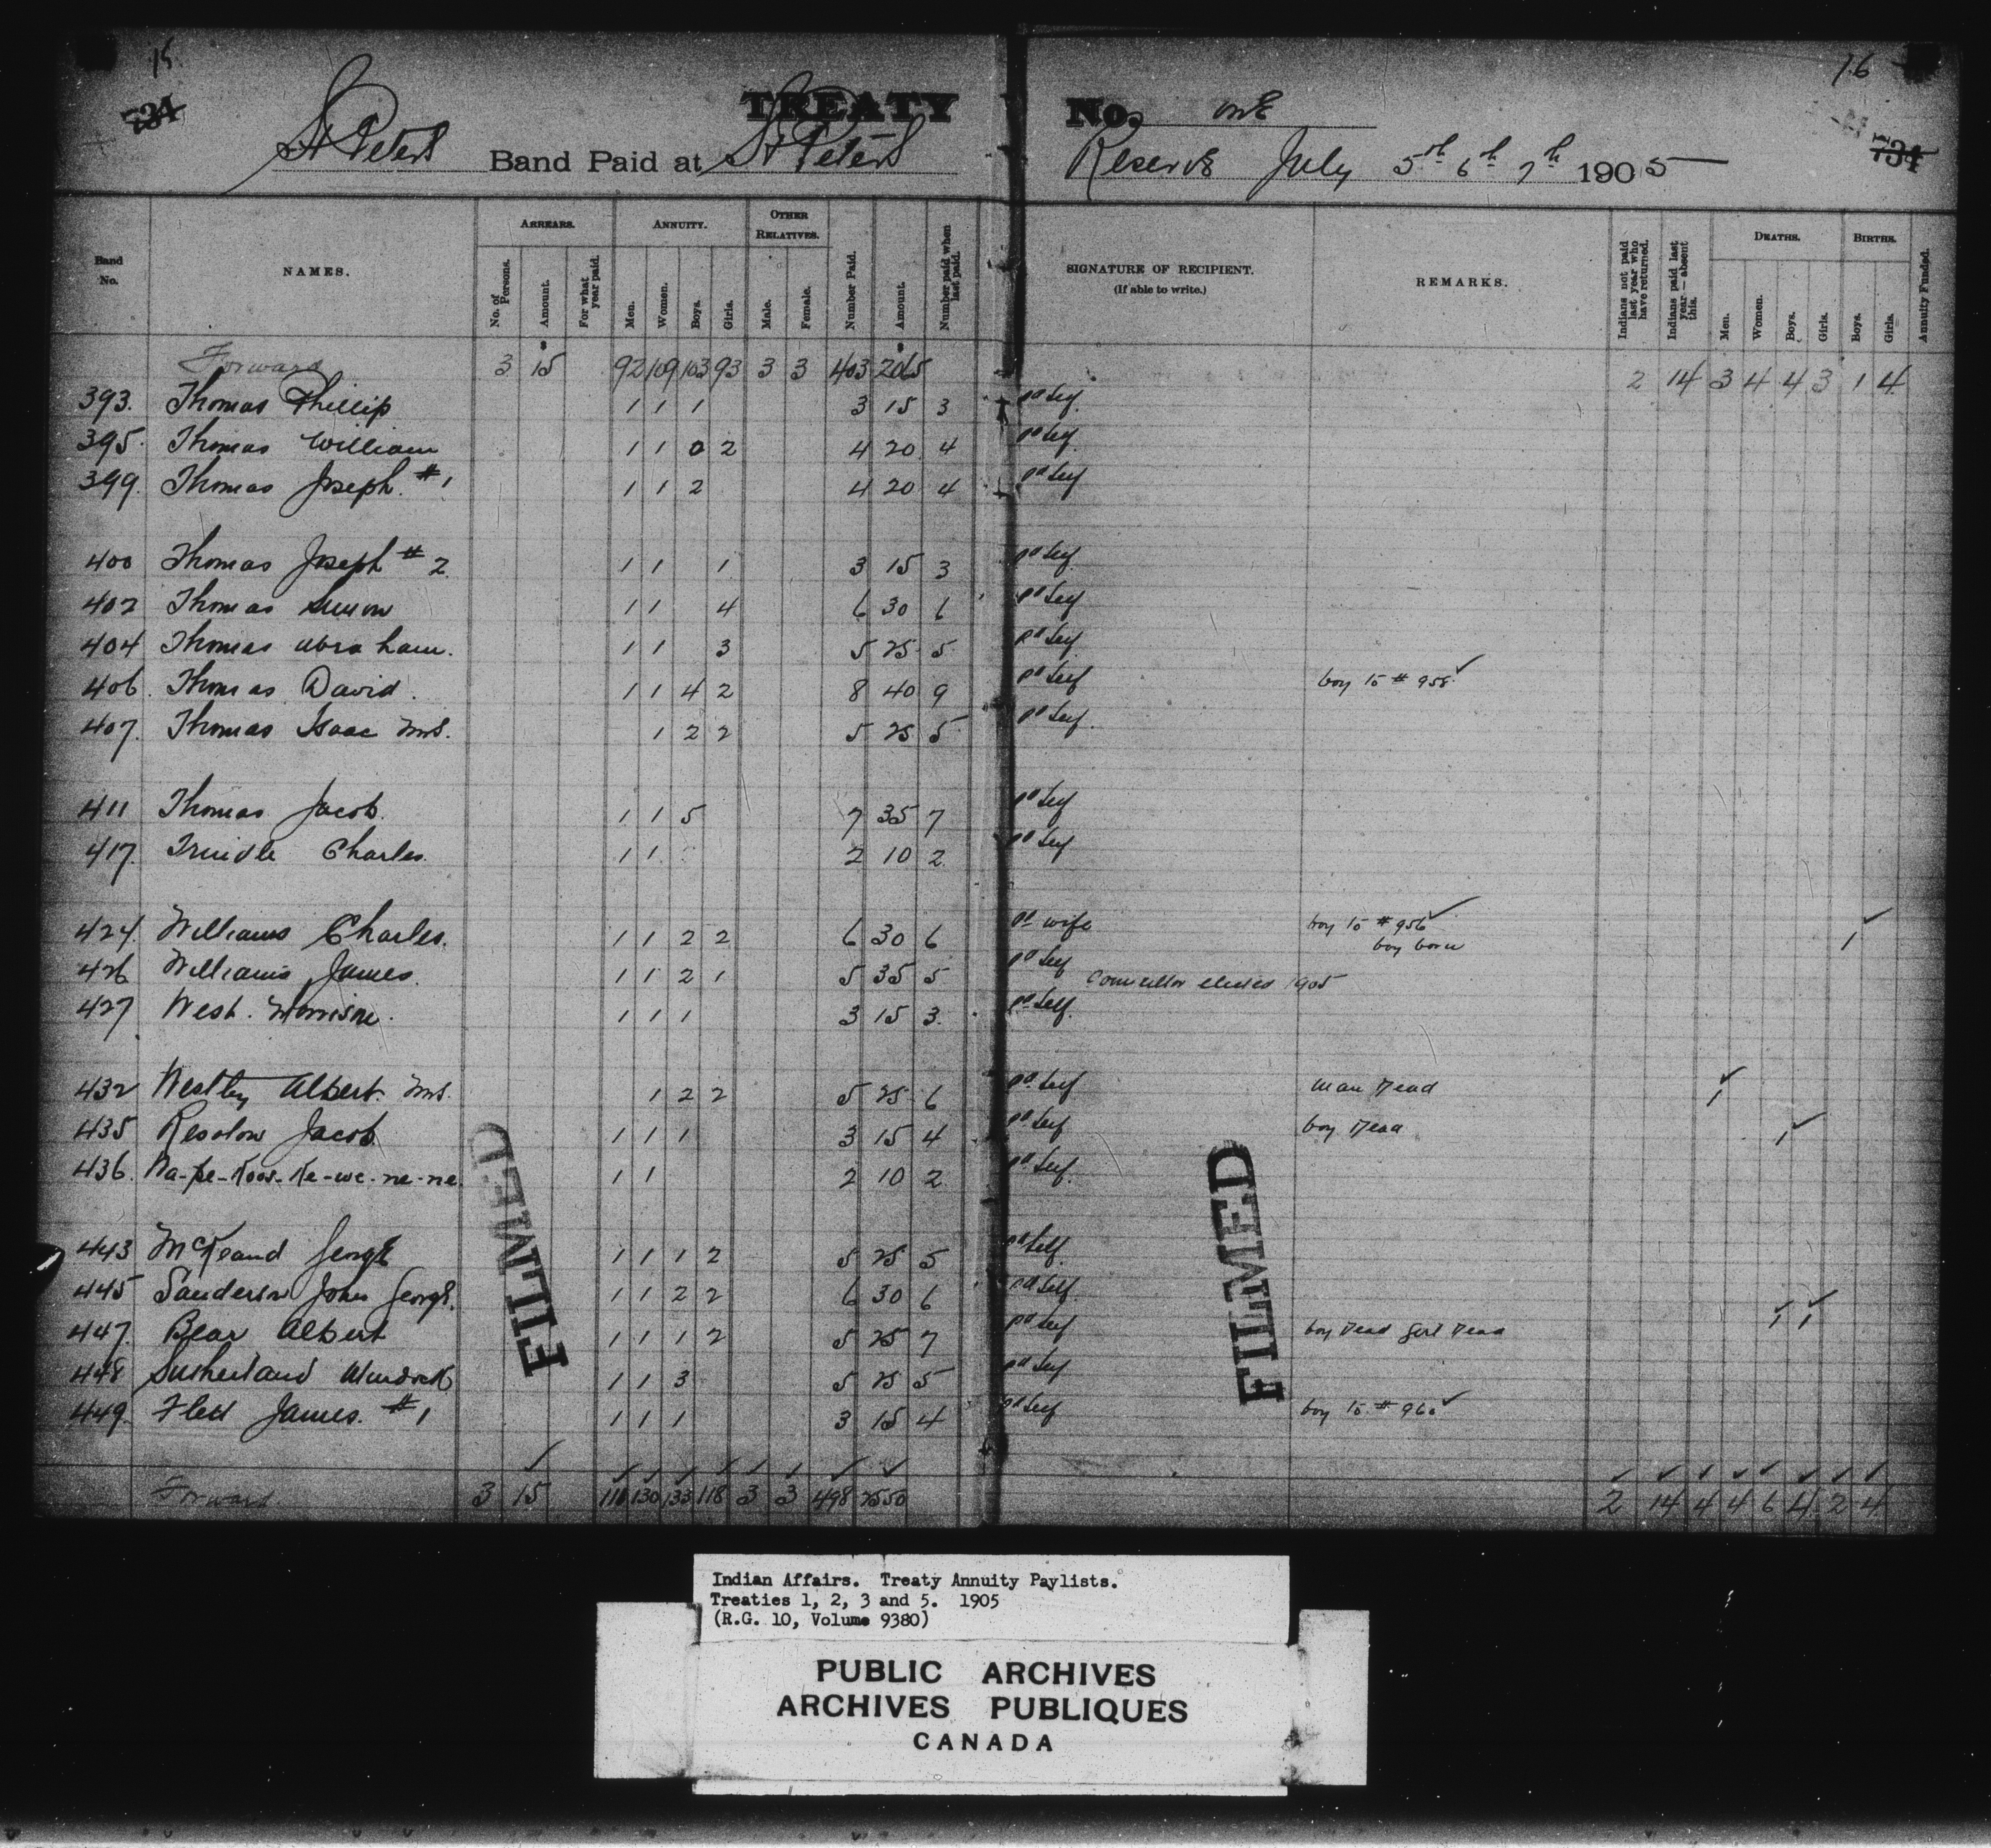 15.
16
734
TREATY No. One
734
St Peters Band Paid at St Peters Reserve July 5th 6th 7th 1905
Band No.
NAMES.
ARREARS.
No. of Persons.
Amount.
For what year paid.
ANNUITY.
Men.
Women.
Boys.
Girls.
OTHER RELATIVES.
Male.
Female.
Number Paid.
Amount.
Number paid when last paid.
SIGNATURE OF RECIPIENT.
(If able to write.)
REMARKS.
Indians not paid last year who have returned.
Indians paid last year — absent this.
DEATHS.
Men.
Women.
Boys.
Girls.
BIRTHS.
Boys.
Girls.
Annuity Funded.
Forward 3 15 92 109 103 93 3 3 403 2065 2 14 3 4 4 3 1 4
393. Thomas Phillip 1 1 1 3 15 3 pd self
395. Thomas William 1 1 0 2 4 20 4 pd self
399. Thomas Joseph #1 1 1 2 4 20 4 pd self
400 Thomas Joseph #2 1 1 1 3 15 3 pd self
402 Thomas Simon 1 1 4 6 30 6 pd self
404 Thomas Abraham. 1 1 3 5 25 5 pd self
406. Thomas David. 1 1 4 2 8 40 9 pd self boy to # 958 ✓
407. Thomas Isaac Mrs. 1 2 2 5 25 5 pd self
411 Thomas Jacob. 1 1 5 7 35 7 pd self
417. Trindle Charles. 1 1 2 10 2 pd self
424. Williams Charles. 1 1 2 2 6 30 6 pd wife boy to # 956 ✓
boy born 1 ✓
426 Williams James. 1 1 2 1 5 35 5 pd self Councillor elected 1905
427 West. Morrison. 1 1 1 3 15 3. pd self.
432 Westley Albert. Mrs. 1 2 2 5 25 6 pd self man Dead 1 ✓
435 Jacob 1 1 1 3 15 4 pd self boy Dead 1 ✓
436. 1 1 2 10 2 pd self.
443 McKeand George 1 1 1 2 5 25 5 pd self.
445 Sanderson John George. 1 1 2 2 6 30 6 pd self.
447. Bear Albert 1 1 1 2 5 25 7 pd self boy Dead girl Dead 1 ✓ 1 ✓
448 Sutherland Murdock 1 1 3 5 25 5 pd self
449. Flett James. #1 1 1 1 3 15 4 pd self boy to # 960 ✓
Forward 3 15 110 130 133 118 3 3 498 2550 2 14 4 4 6 4 2 4
FILMED
FILMED
Indian Affairs. Treaty Annuity Paylists.
Treaties 1, 2, 3 and 5. 1905
(R.G. 10, Volume 9380)
PUBLIC ARCHIVES
ARCHIVES PUBLIQUES
CANADA